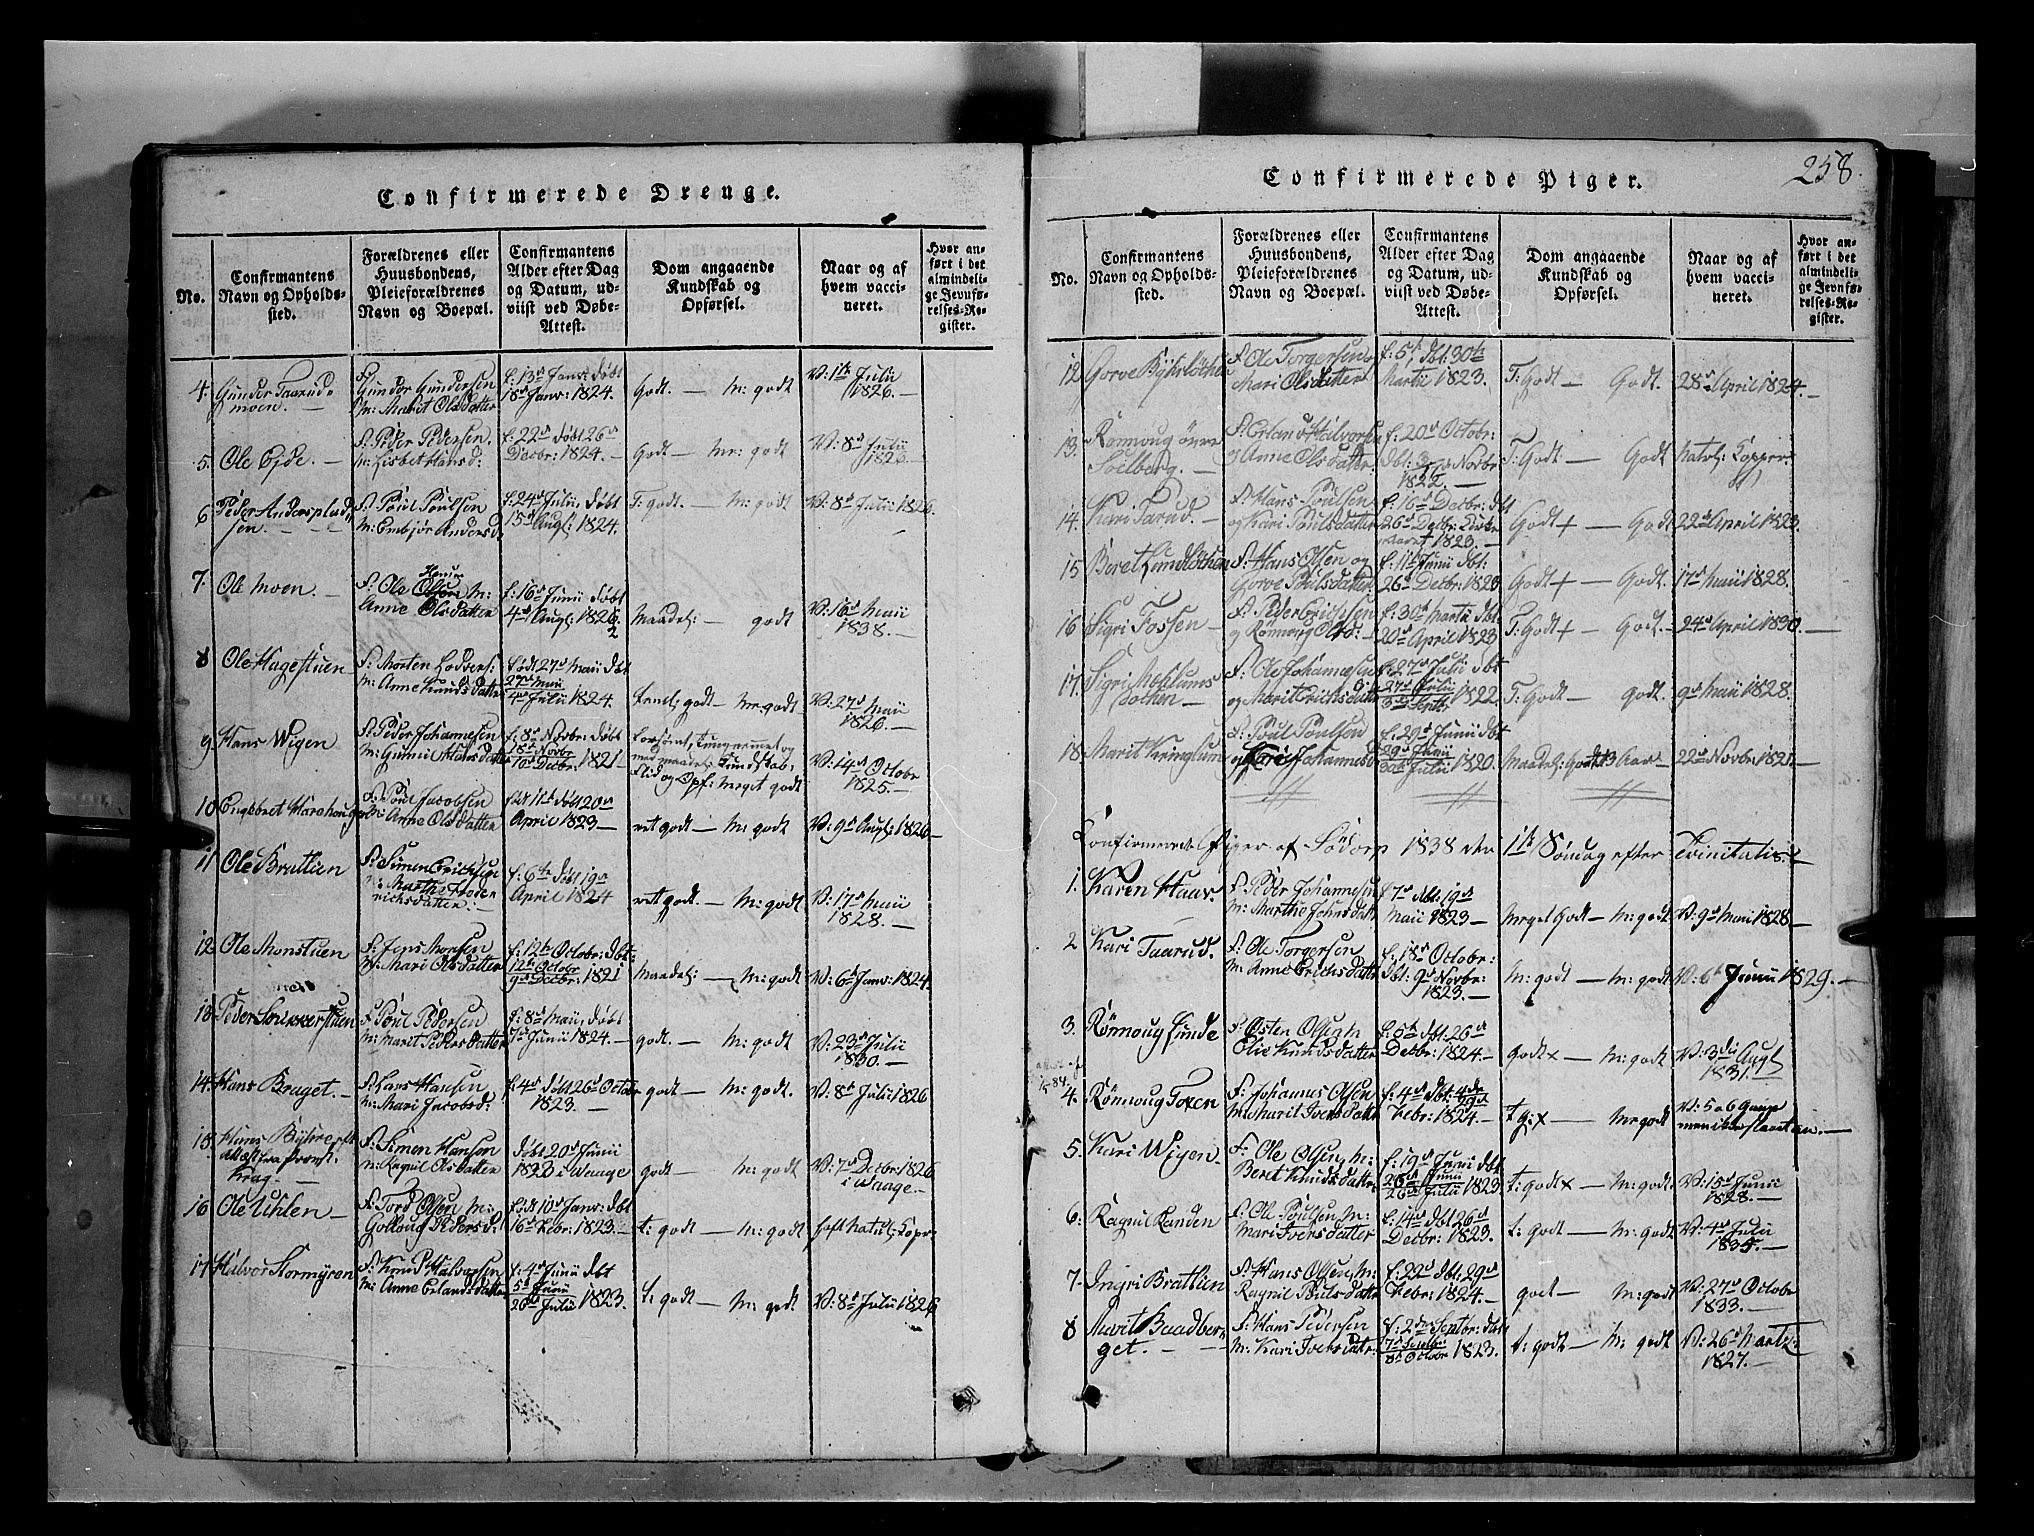 Confirmerede Drenge.
No.
Confirmantens
Navn og Opholds-
sted.
Forældrenes eller
Huusbondens,
Pleieforældrenes
Navn og Boepæl.
Confirmantens
Alder efter Dag
og Datum, ud-
viist ved Døbe-
Attest.
Dom angaaende
Kundskab og
Opførsel.
Naar og af
hvem vacci-
neret.
Hvor an-
ført i det
almindeli-
ge Jevnfø-
relses-Re-
gister.
4. Gunder Taarud-
moen. F: Gunder Gundersen
M: Marit Olsdatter f: 13d Janv: døbt
18d Janv: 1824. Godt. — M: godt V: 1te Julii
1826. —
5. Ole Eide. — F: Peder Pedersen.
M: Lisbet Hansd: f: 22d døbt 26d
Decbr: 1824. — Godt — M: godt V: 8d Julii
1826. —
6. Peder Andersplads-
sen. — F: Poul Poulsen
M: Embjør Andersd: f: 24d Julii, døbt
15d Augl: 1824. T. godt. — M: godt V: 8d Julii 1826.
7. Ole Moen. — F: Ole Hans
Olsen M:
Anne Olsdatter f: 16d Junii døbt
4d Augl: 1822 Maadel: — godt V: 16d Maii
1838. —
8 Ole Hagestuen F: Morten
M: Anne Knudsdatter født 27d Maii dbt
27d Maii
4d Julii 1824. temel: godt — M: godt V: 27d Maii
1826. —
9 Hans Wigen F: Peder Johannesen
M: Gunnil Hansdatter f: 8d Novbr: døbt
18d Novbr
10d Decbr: 1821 — Tungnemmet og
med maadel: Kundskab,
Flid og Opf: meget godt V: 14d Octobr
1825. —
10 Engebret Harehoug F: Poul Jacobsen
M: Anne Olsdatter født 11d døbt 20d
April 1823 — ret godt — M: godt V: 9d Augl: 1826 —
11 Ole Bratlien F: Simen Erichsen
M: Marthe Hoden
richsdatter. — f: 6te døbt 19d
April 1824 ret godt. — M: godt. V: 17d Maii
1828. —
12. Ole Monstuen F: Jens Monsen
M: Mari Olsdatter f: 12te Octobr: dbt:
12te Octobr
9d Decbr: 1821 Maadel: — M: godt V: 6d Janv: 1824.
13. Peder F: Poul Pedersen
M: Marit Pedersdatter f: 8d Maii, døbt
7d Junii 1824. — godt. — M: godt V: 23d Julii
1830. —
14. Hans Braget. — F: Lars Hansen
M: Mari Jacobsd: f: 4d døbt 26d Octobr
1823. — godt — M: godt. V: 8d Juli: 1826
15. Hans
Krag. — F: Simen Hansen
M: Ragnil Olsdatter døbt 20d Junii
1822 i Waage godt — M: godt V: 7d Decbr: 1826
i Waage. —
16 Ole Uhlen — F: Tord Olsen M:
Gollaug Pedersd: født 10d Janv: dbt
16d Febr: 1823. — t: godt — M: godt haft Natul: Kopr.
17 Halvor Stormyren F: Knud Halvorsen
M: Anne Erlandsdatter f: 4d Junii dbt
5d Junii
20d Julii 1823. t: godt — M: godt V: 8d Julii 1826
Confirmerede Piger.
258.
No.
Confirmantens
Navn og Opholds-
sted.
Forældrenes eller
Huusbondens,
Pleieforældrenes
Navn og Boepæl.
Confirmantens
Alder efter Dag
og Datum, ud-
viist ved Døbe-
Attest.
Dom angaaende
Kundskab og
Opførsel.
Naar og af
hvem vacci-
neret.
Hvor an-
ført i det
almindeli-
ge Jevnfø-
relses-Re-
gister.
12 Gorve F: Ole Torgersen
Mari Olsdatter f: 5t dbt: 30te
Martii 1823. T: Godt — Godt. 28d April 1824.
13. Rønnoug øvre
Soelberg. — F: Erland Halvorsen
og Anne Olsdatter f: 20d Octobr:
dbt: 3d Novbr
1822. — T: Godt — Godt Natrl: Kopper.
14. Kari Tarud. — F: Hans Poulsen
og Kari Poulsdatter f: 16d Decbr: dbt
26d Decbr:
1823. — Godt + — Godt 22d April 1823.
15 Beret F: Hans Olsen og
Gorve Poulsdatter f: 11te Junii dbt:
26d Decbr: 1820 Godt + — Godt. 17d Maii 1828.
16 Sigri Fossen — F: Peder Erichsen
og Rønnoug Olsd: — f: 30d Martii dbt:
20d April 1823 T: Godt + — Godt. — 24d April 1830. —
17. Sigri Mæhlums
— F: Ole Johannesen
og Marit Erichsdatter f: 27d Julii dbt
27d Julii
3d Septb: 1822. T: Godt — godt. 9d Maii 1828.
18. Marit Kringlum F: Poul Poulsen
og Kari Johannesd f: 29d Junii dbt
29d Junii
30d Julii 1820. Maadel: Godt 13 Aar — 22d Novbr: 1821. —
Confirmerede Piger af Sødorp 1838 den 1te Søndag efter Trinitatis. —
1. Karen Haav. F: Peder Johannesen
M: Marthe Johnsdatt: f: 7d dbt: 19d
Maii 1823 — Meget Godt — M: godt V: 9d Maii 1828 —
2 Kari Taarud. F: Ole Torgersen
M: Anne Erichsdatt: f: 18d Octobr:
dbt: 9d Novbr:
1823. — M: godt — M: godt V: 6d Junii 1829. —
3. Rønnoug Sunde F: Østen Olsen M
Elie Knudsdatter f: 5te dbt 26d
Decbr: 1824. — godt x — M: godt V: 3die Augl
1831. —
4. Rønnoug Foxen F: Johannes Olsen
M: Marit Iversdatt: f: 4d dbt:
Febr: 1824. — t g: x — M: godt V: 5 a 6 Gange
men ikke slaaet an. —
5. Kari Wigen — F: Ole Olsen, M:
Beret Knudsdatt: f: 19d Junii dbt
26d Junii
26d Julii 1823 t: godt x — M: godt. V: 15d Junii
1828. —
6. Ragnil Randen F: Ole Poulsen, M:
Mari Iversdatter f: 14d dbt 26d
Decbr: 1823. t: godt — M: godt V: 4d Julii
1835. —
7. Ingri Bratlien F: Hans Olsen, M:
Ragnil Poulsdatt: f: 22d dbt: 29d
Febr: 1824. — godt — M: godt V: 27d Octobr
1833. —
8 Marit Baadber-
get. — F: Hans Pedersen
M: Kari Iversdatt: f: 2den Septbr: dbt
7d Septbr
8d Octobr 1823. t: godt — M: godt V: 26d Martz:
1827. —